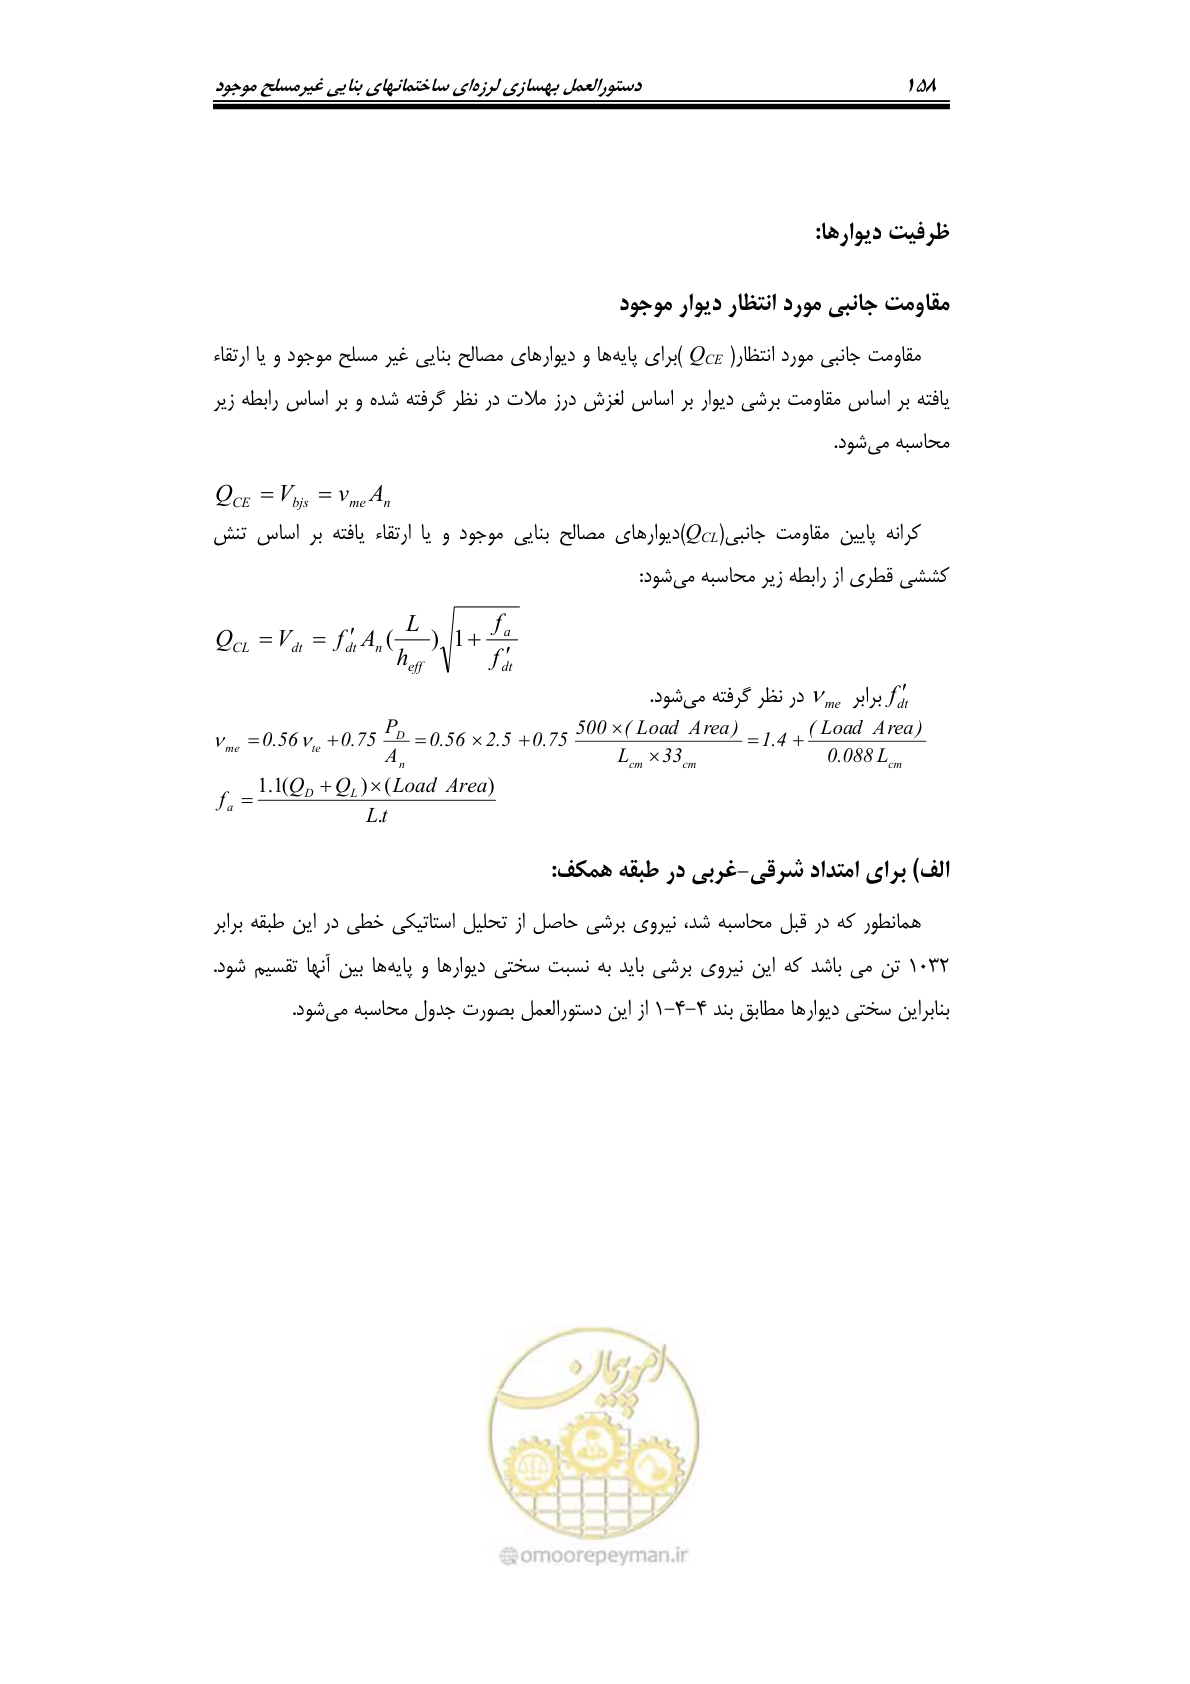 ۱۵۸ دستورالعمل بهسازی لرزه‌ای ساختمانهای بنایی غیرمسلح موجود
ظرفیت دیوارها:
مقاومت جانبی مورد انتظار دیوار موجود
مقاومت جانبی مورد انتظار( Q_CE )برای پایه‌ها و دیوارهای مصالح بنایی غیر مسلح موجود و یا ارتقاء
یافته بر اساس مقاومت برشی دیوار بر اساس لغزش درز ملات در نظر گرفته شده و بر اساس رابطه زیر
محاسبه می‌شود.
Q_CE = V_bjs = v_me A_n
کرانه پایین مقاومت جانبی(Q_CL)دیوارهای مصالح بنایی موجود و یا ارتقاء یافته بر اساس تنش
کششی قطری از رابطه زیر محاسبه می‌شود:
Q_CL = V_dt = f′_dt A_n (L / h_eff) √(1 + f_a / f′_dt)
f′_dt برابر ν_me در نظر گرفته می‌شود.
ν_me = 0.56 ν_te + 0.75 P_D / A_n = 0.56 × 2.5 + 0.75 500 × ( Load Area ) / L_cm × 33_cm = 1.4 + ( Load Area ) / 0.088 L_cm
f_a = 1.1(Q_D + Q_L) × (Load Area) / L.t
الف) برای امتداد شرقی-غربی در طبقه همکف:
همانطور که در قبل محاسبه شد، نیروی برشی حاصل از تحلیل استاتیکی خطی در این طبقه برابر
۱۰۳۲ تن می باشد که این نیروی برشی باید به نسبت سختی دیوارها و پایه‌ها بین آنها تقسیم شود.
بنابراین سختی دیوارها مطابق بند ۴-۴-۱ از این دستورالعمل بصورت جدول محاسبه می‌شود.
امور پیمان
@omoorepeyman.ir